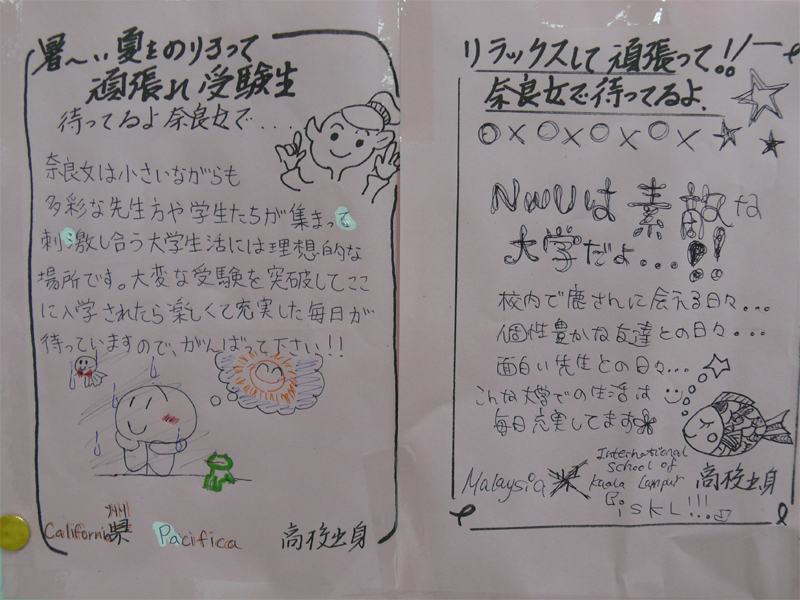 暑〜い夏をのりきって
頑張れ受験生
待ってるよ奈良女で....
奈良女は小さいながらも
多彩な先生方や学生たちが集まって
刺激し合う大学生活には理想的な
場所です。大変な受験を突破してここ
に入学されたら楽しくて充実した毎日が
待っていますので、がんばって下さい!!
California県 Pacifica 高校出身
リラックスして頑張って!!
奈良女で待ってるよ.
NWUは素敵な
大学だよ...!!
校内で鹿さんに会える日々...
個性豊かな友達との日々...
面白い先生との日々...
こんな大学での生活は
毎日充実してます
Malaysia International School of Kuala Lumpur 高校出身
ISKL!!!